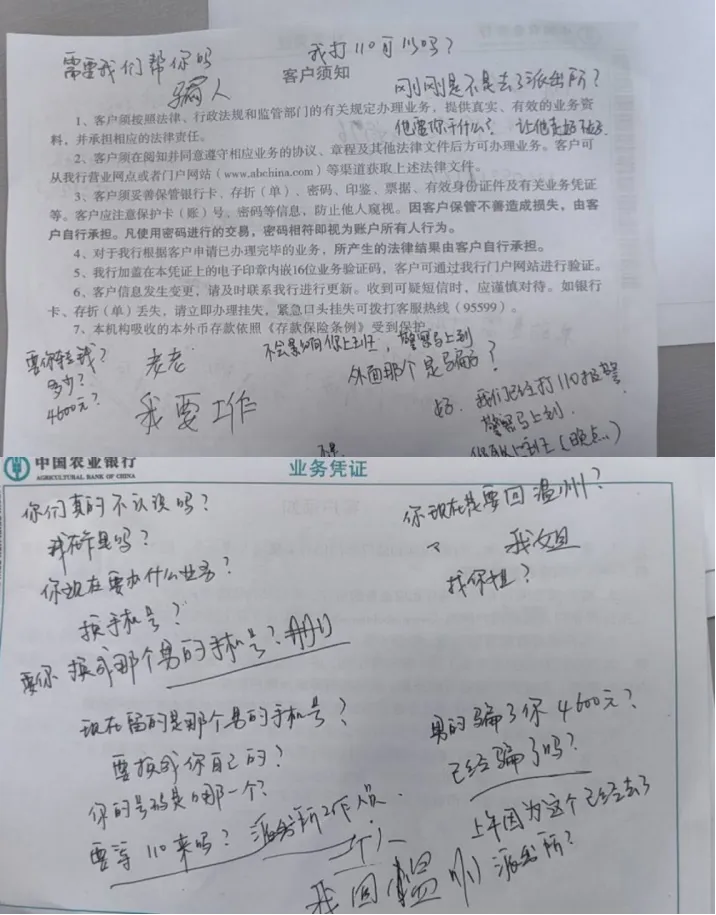 需要我们帮你吗
我打110可以吗？
骗人
客户须知
刚刚是不是去了派出所？
他要你干什么？ 让他走好不好
1、客户须按照法律、行政法规和监管部门的有关规定办理业务，提供真实、有效的业务资
料，并承担相应的法律责任。
2、客户须在阅知并同意遵守相应业务的协议、章程及其他法律文件后方可办理业务。客户可
从我行营业网点或者门户网站（www.abchina.com）等渠道获取上述法律文件。
3、客户须妥善保管银行卡、存折（单）、密码、印鉴、票据、有效身份证件及有关业务凭证
等。客户应注意保护卡（账）号、密码等信息，防止他人窥视。因客户保管不善造成损失，由客
户自行承担。凡使用密码进行的交易，密码相符即视为账户所有人行为。
4、对于我行根据客户申请已办理完毕的业务，所产生的法律结果由客户自行承担。
5、我行加盖在本凭证上的电子印章内嵌16位业务验证码，客户可通过我行门户网站进行验证。
6、客户信息发生变更，请及时联系我行进行更新。收到可疑短信时，应谨慎对待。如银行
卡、存折（单）丢失，请立即办理挂失，紧急口头挂失可拨打客服热线（95599）。
7、本机构吸收的本外币存款依照《存款保险条例》受到保护。
要你转钱？
多少？
4600元？
老老
我要工作
不会影响你上班，警察马上到
外面那个是骗子？
好．我们已经打110报警
警察马上到．
上班（晚点…）
中国农业银行
AGRICULTURAL BANK OF CHINA
业务凭证
你们真的不认识吗？
你现在要办什么业务？
换手机号？
要你换成那个男的手机号？
现在留的是那个男的手机号？
要换成你自己的？
你的号码是哪一个？
要等110来吗？派出所工作人员．
一个人
我回温州
你现在是要回温州？
我姐
找你姐？
男的骗了你4600元？
已经骗了吗？
上午因为这个已经去了
派出所？